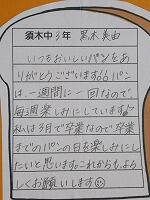 須木中3年 黒木美由
いつもおいしいパンをあ
りがとうございます。パン
は、一週間に一回なので
毎週楽しみにしています♪
私は3月で卒業なので卒業
までのパンの日を楽しみにし
たいと思います。これからも、よろ
しくお願いします